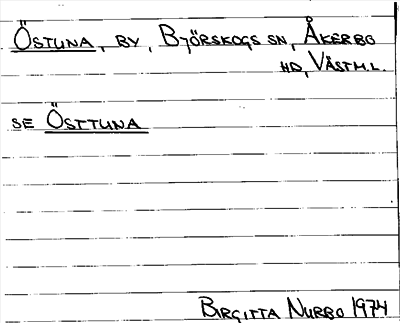 ÖSTUNA, BY, BJÖRSKOGS SN, ÅKERBO
HD, VÄSTM.L.
SE ÖSTTUNA
BIRGITTA NURBO 1974